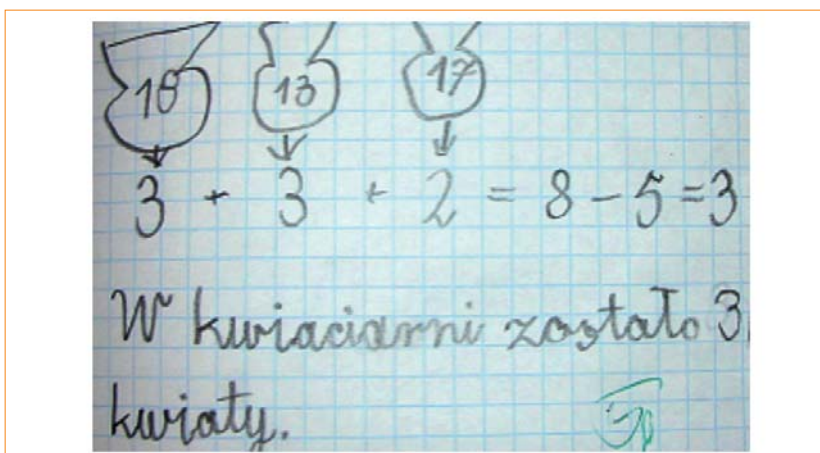 18 13 17
3 + 3 + 2 = 8 - 5 = 3
W kwiaciarni zostało 3
kwiaty.